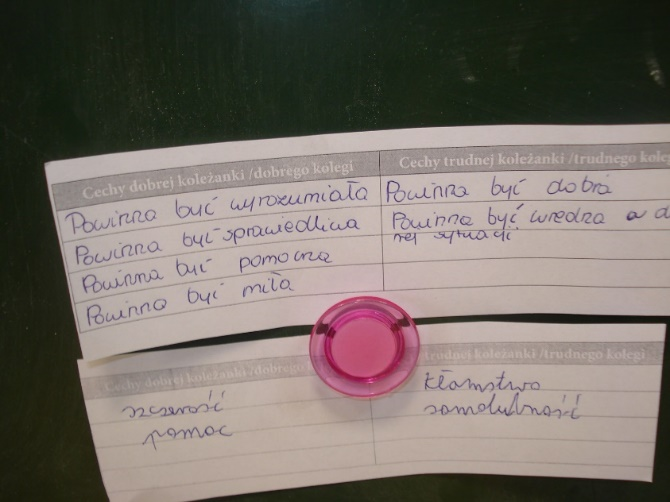 Cechy dobrej koleżanki /dobrego kolegi
Cechy trudnej koleżanki /trudnego
Powinna być wyrozumiała
Powinna być sprawiedliwa
Powinna być pomocna
Powinna być miła
Powinna być dobra
Powinna być wredza w
nej sytuacji
Cechy dobrej koleżanki /dobrego
trudnej koleżanki /trudnego kolegi
szczerość
pomoc
kłamstwo
samolubność